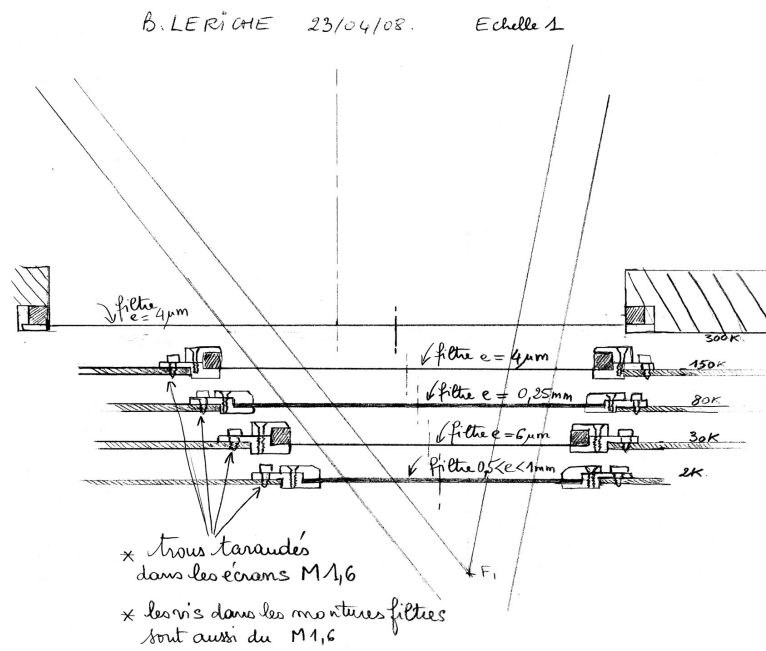 B. LERICHE 23/04/08. Echelle 1
filtre
e = 4 µm
300K.
filtre e = 4 µm
150K.
filtre e = 0,25 mm
80K
filtre e = 6 µm
30K
filtre 0,5 < e < 1 mm
2K.
F1
* trous taraudés
dans les écrans M 1,6
* les vis dans les montures filtres
sont aussi du M1,6